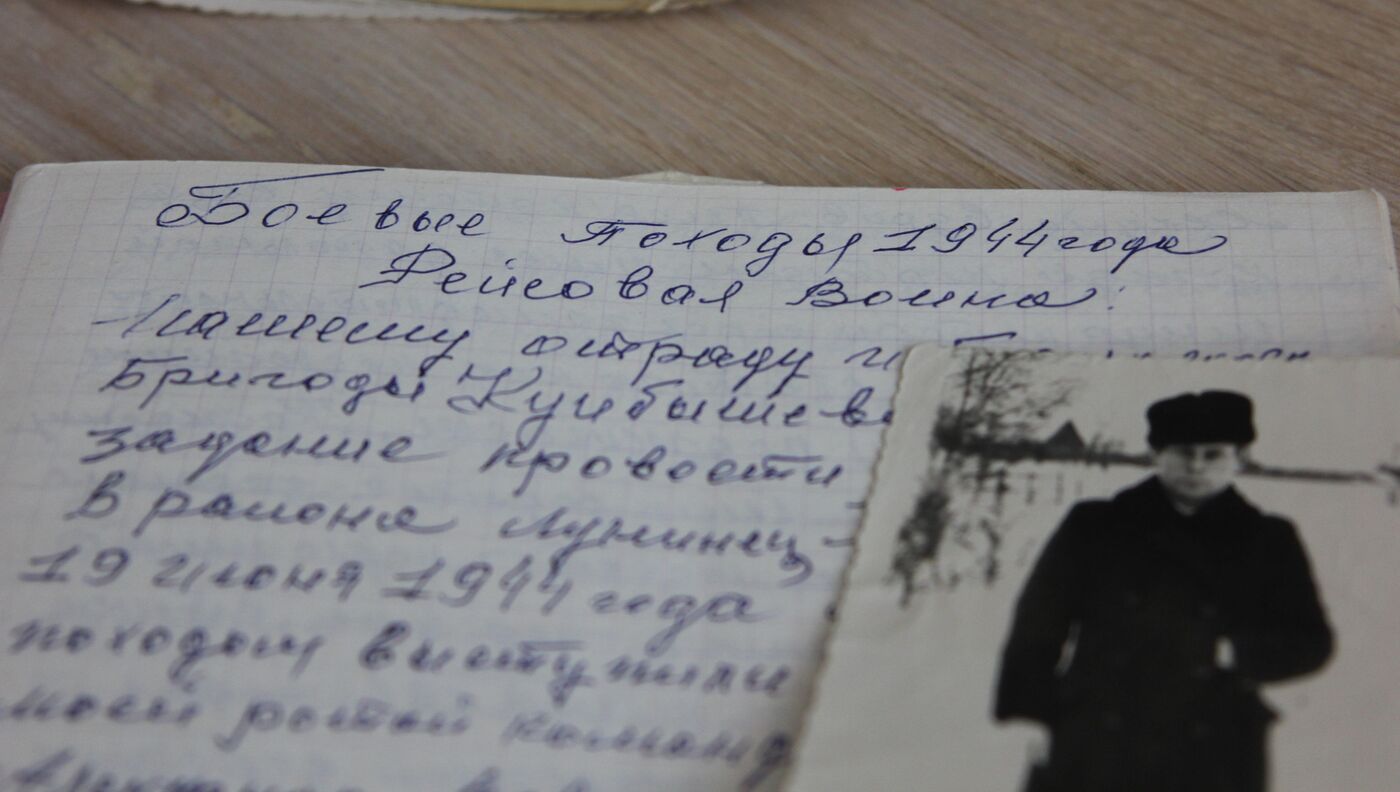 Боевые Походы 1944 года
Рейсовая Война:
Нашему отряду и
Бригады Куйбышева
задание провости
В районе Лунинец-
19 июня 1944 года
походом выступили
моей ротой команд